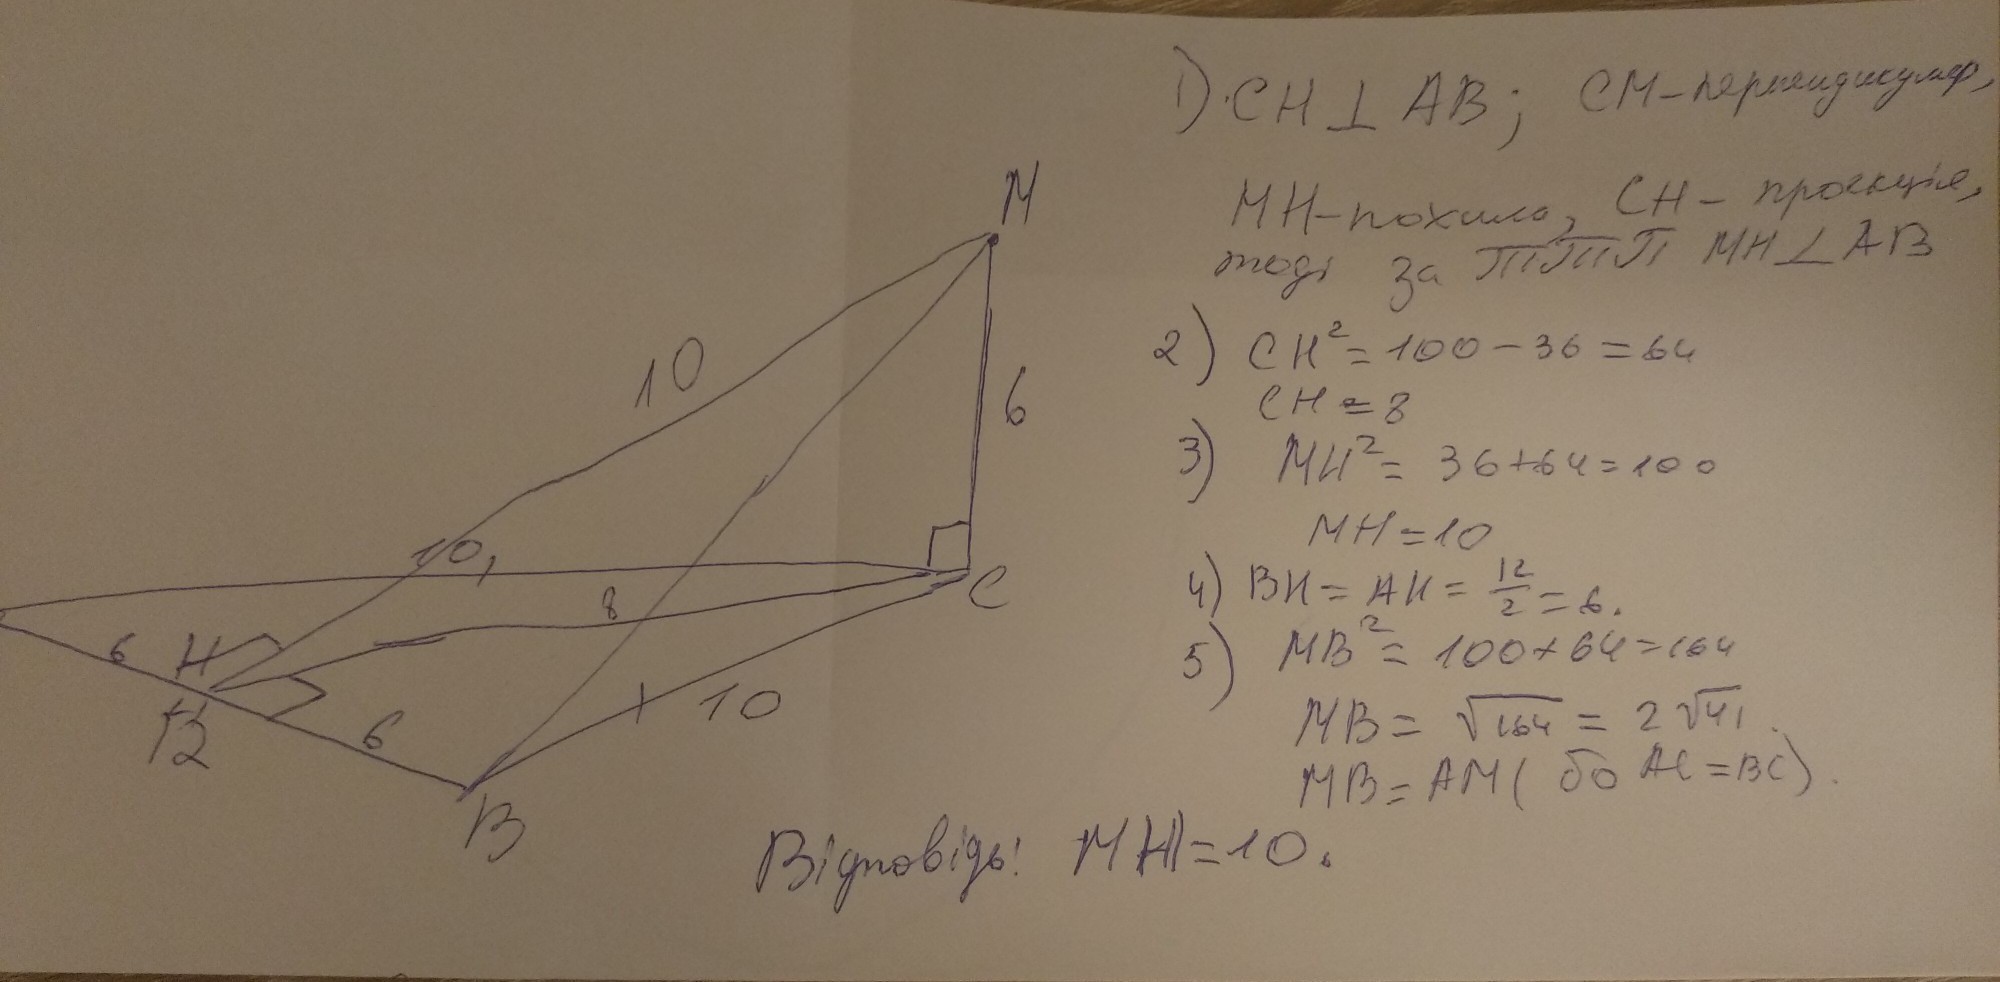 M
10
6
10,
8
C
6
H
12
6
10
B
1) CH⊥AB; CM-перпендикуляр,
MH-похила, CH-проекція,
тоді за ТТП MH⊥AB
2) CH²=100-36=64
CH=8
3) MH²=36+64=100
MH=10
4) BH=AH=12/2=6.
5) MB²=100+64=164
MB=√164=2√41.
MB=AM(бо AC=BC).
Відповідь: MH=10.